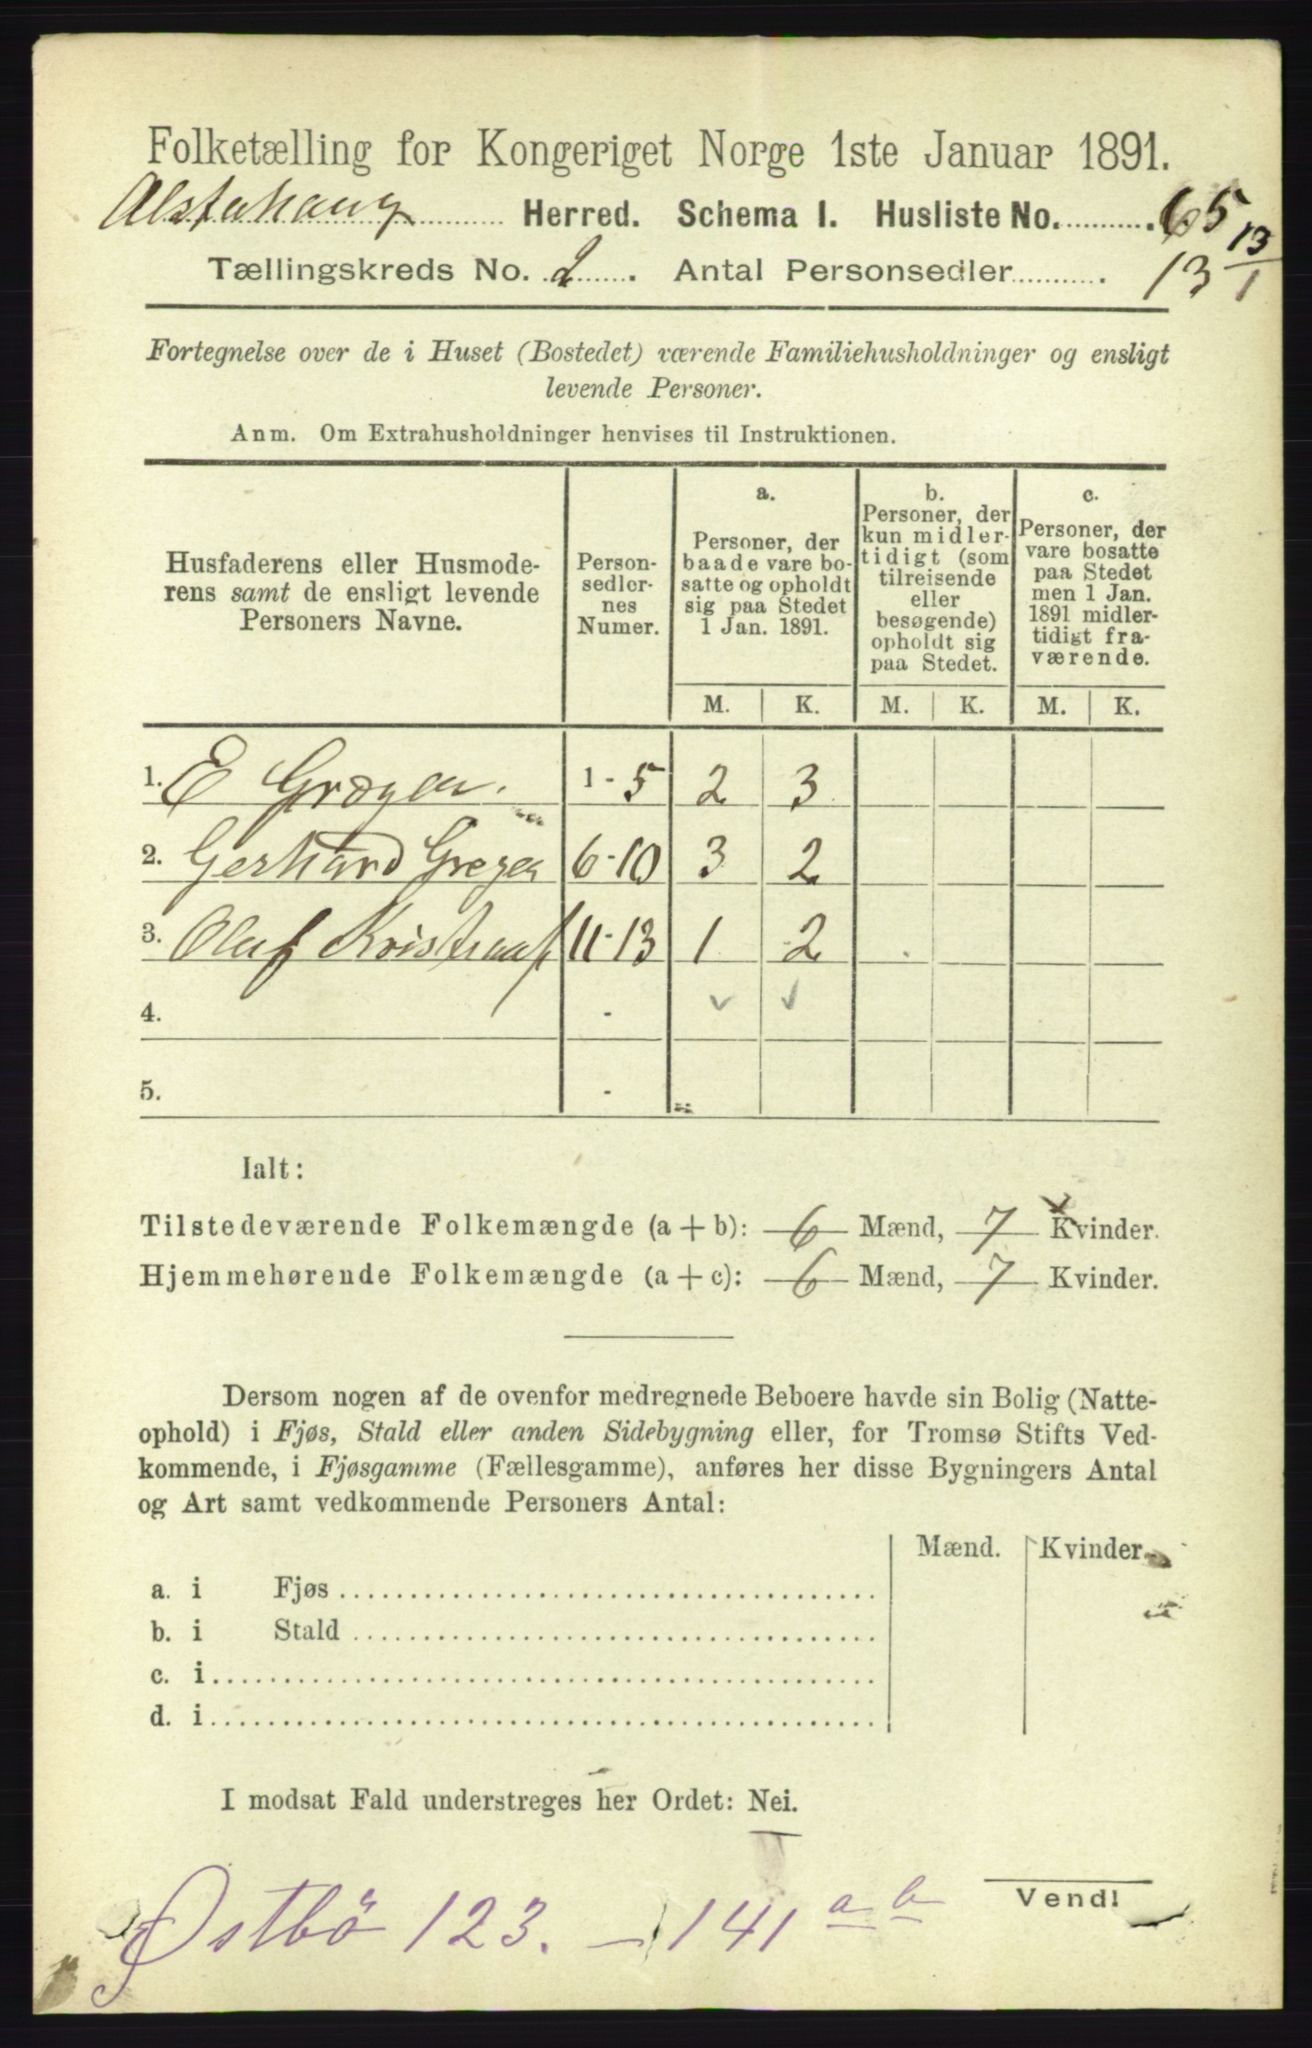 Folketælling for Kongeriget Norge 1ste Januar 1891.
Alstahoug Herred. Schema I. Husliste No. 65
13/1
Tællingskreds No. 2. Antal Personsedler 13
Fortegnelse over de i Huset (Bostedet) værende Familiehusholdninger og ensligt
levende Personer.
Anm. Om Extrahusholdninger henvises til Instruktionen.
Husfaderens eller Husmode-
rens samt de ensligt levende
Personers Navne.
Person-
sedler-
nes
Numer.
a.
Personer, der
baade vare bo-
satte og opholdt
sig paa Stedet
1 Jan. 1891.
b.
Personer, der
kun midler-
tidigt (som
tilreisende
eller
besøgende)
opholdt sig
paa Stedet.
c.
Personer, der
vare bosatte
paa Stedet
men 1 Jan.
1891 midler-
tidigt fra-
værende.
M. K. M. K. M. K.
1. E 1-5 2 3
2. Gerhard 6-10 3 2
3. Olaf 11-13 1 2
4. -
5. -
Ialt:
Tilstedeværende Folkemængde (a + b): 6 Mænd, 7 Kvinder.
Hjemmehørende Folkemængde (a + c): 6 Mænd, 7 Kvinder.
Dersom nogen af de ovenfor medregnede Beboere havde sin Bolig (Natte-
ophold) i Fjøs, Stald eller anden Sidebygning eller, for Tromsø Stifts Ved-
kommende, i Fjøsgamme (Fællesgamme), anføres her disse Bygningers Antal
og Art samt vedkommende Personers Antal:
Mænd. Kvinder.
a. i Fjøs
b. i Stald
c. i
d. i
I modsat Fald understreges her Ordet: Nei.
Vend!
Østbö 123. – 141 a b